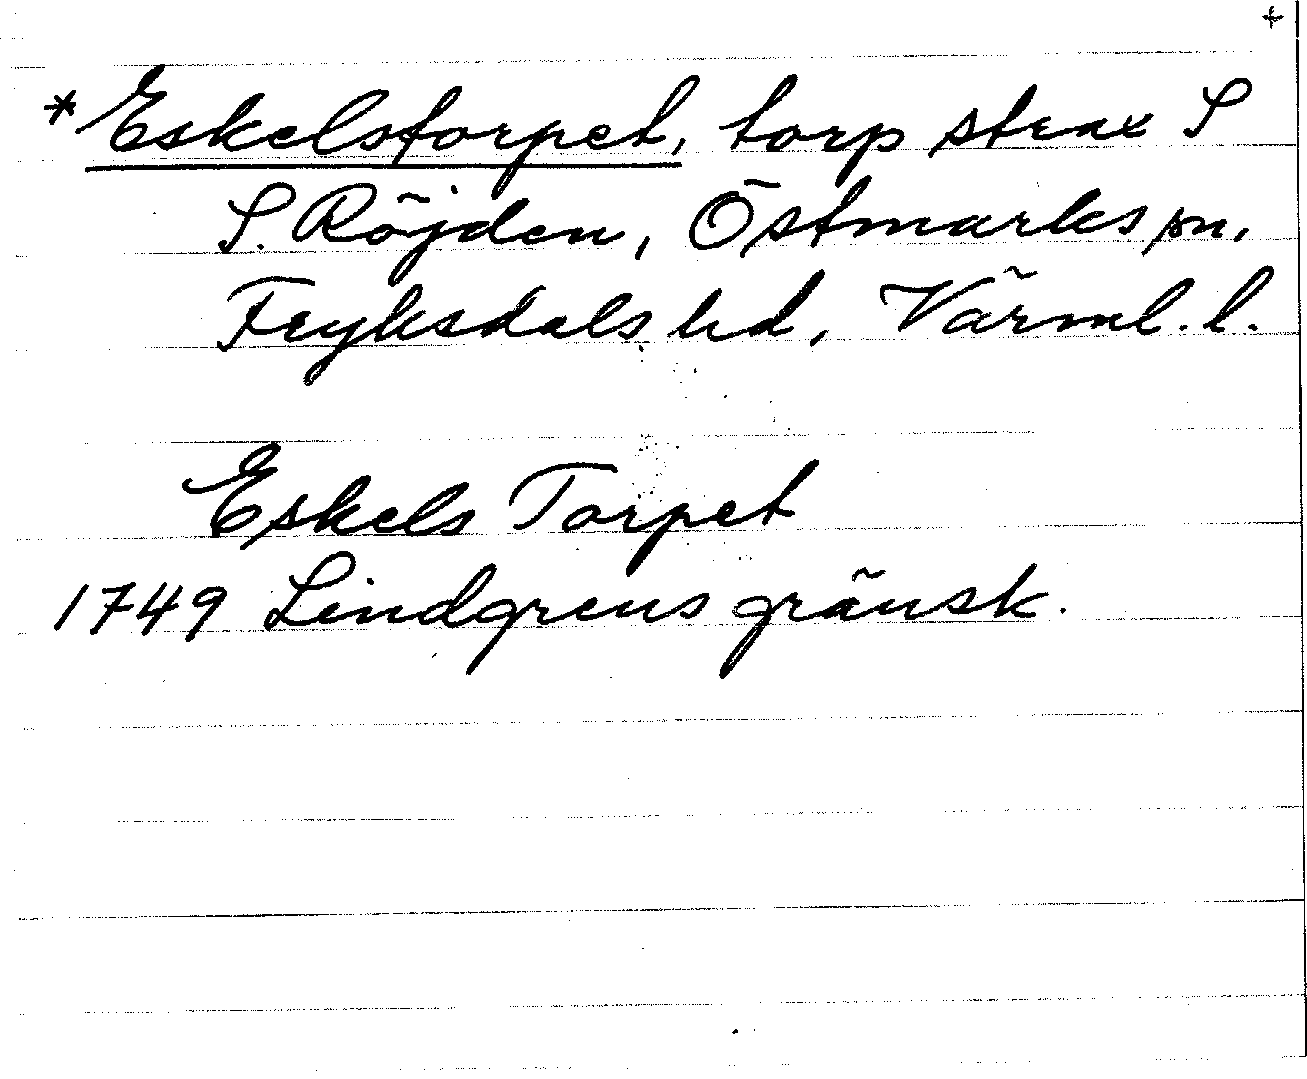 +
*Eskelstorpet, torp strax S
S. Röjden, Östmarks sn,
Fryksdals hd, Värml. l.
Eskels Torpet
1749 Lindgrens gränsk.